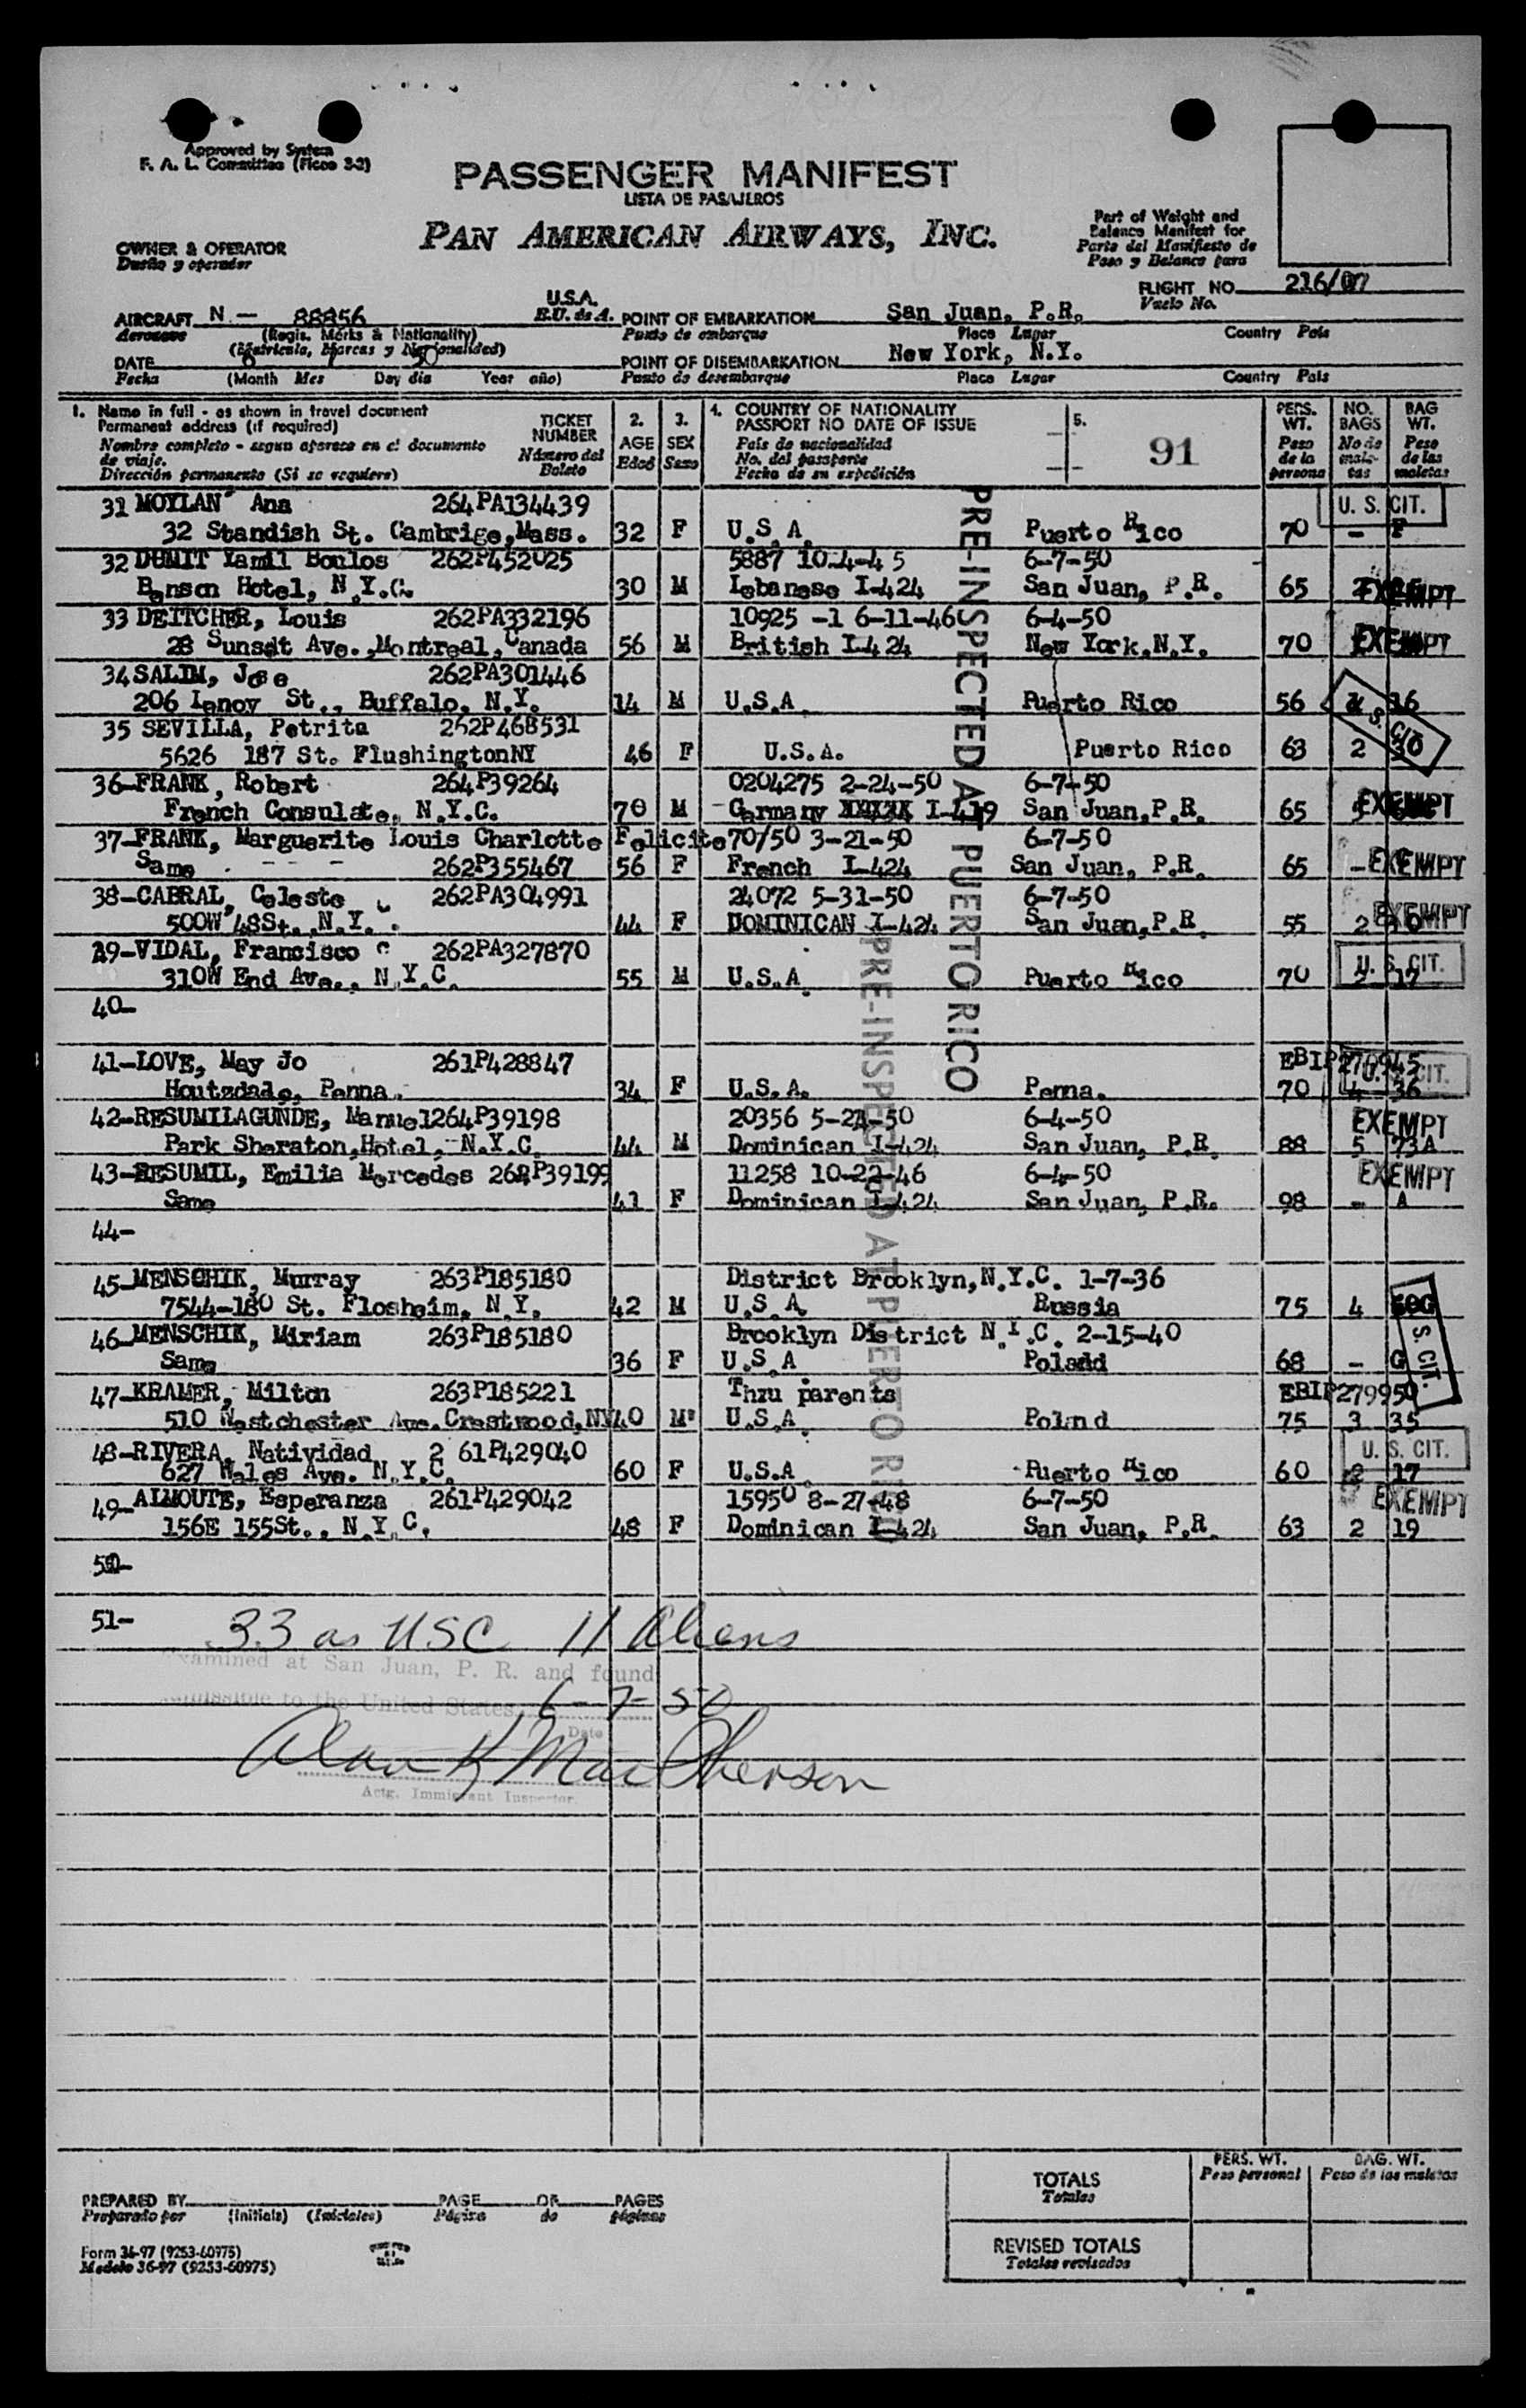 Approved by System
F. A. L. Committee (Ficoo 3-2)
PASSENGER MANIFEST
LISTA DE PASAJEROS
PAN AMERICAN AIRWAYS, INC.
OWNER & OPERATOR
Dueño y operador
Part of Weight and
Balance Manifest for
Parte del Manifiesto de
Peso y Balance para
FLIGHT NO. 216/07
Vuelo No.
AIRCRAFT N — 88856 U.S.A. POINT OF EMBARKATION San Juan, P.R.
Aeronave (Regis. Marks & Nationality) E.U. de A. Punto de embarque Place Lugar Country País
(Matricula, Marcas y Nacionalidad)
DATE 50 POINT OF DISEMBARKATION New York, N.Y.
Fecha (Month Mes Day dia Year año) Punto de desembarque Place Lugar Country País
1. Name in full - as shown in travel document
Permanent address (if required)
Nombre completo - segun aparece en el documento
de viaje.
Dirección permanente (Si se requiere)
TICKET
NUMBER
Número del
Boleto
2.
AGE
Edad
3.
SEX
Sexo
4. COUNTRY OF NATIONALITY
PASSPORT NO DATE OF ISSUE
País de nacionalidad
No. del pasaporte
Fecha de su expedición
5.
91
PERS.
WT.
Peso
de la
persona
NO.
BAGS
No de
male-
tas
BAG
WT.
Peso
de las
maletas
31 MOYLAN Ana 264PA134439 U. S. CIT.
32 Standish St. Cambrige,Mass. 32 F U.S.A. Puerto Rico 70 - F
32 DUMIT Yamil Boulos 262P452025 5887 10-4-45 6-7-50
Benson Hotel, N.Y.C. 30 M Lebanese I-424 San Juan, P.R. 65 2 EXEMPT
33 DEITCHER, Louis 262PA332196 10925 -1 6-11-46 6-4-50
28 Sunset Ave.,Montreal,Canada 56 M British I-424 New York,N.Y. 70 EXEMPT
34 SALIM, Jose 262PA301446
206 Lenoy St., Buffalo, N.Y. 14 M U.S.A. Puerto Rico 56 16
35 SEVILLA, Petrita 262P468531 U. S. CIT.
5626 187 St. FlushingtonNY 46 F U.S.A. Puerto Rico 63 2 30
36-FRANK, Robert 264P39264 0204275 2-24-50 6-7-50
French Consulate, N.Y.C. 70 M Germany XXXXX I-419 San Juan,P.R. 65 EXEMPT
37-FRANK, Marguerite Louis Charlotte Felicite 70/50 3-21-50 6-7-50
Same - - - 262P355467 56 F French I-424 San Juan, P.R. 65 - EXEMPT
38-CABRAL, Celeste 262PA304991 24072 5-31-50 6-7-50
500W 48St., N.Y. 44 F DOMINICAN I-424 San Juan,P.R. 55 2 EXEMPT
39-VIDAL, Francisco C 262PA327870 U. S. CIT.
310W End Ave., N.Y.C. 55 M U.S.A. Puerto Rico 70 2 17
40-
41-LOVE, May Jo 261P428847 EBIP279945 U.S. CIT.
Houtzdale, Penna. 34 F U.S.A. Penna. 70 4 36
42-RESUMILAGUNDE, Manuel 264P39198 20356 5-24-50 6-4-50 EXEMPT
Park Sheraton,Hotel, N.Y.C. 44 M Dominican I-424 San Juan, P.R. 88 5 73A
43-RESUMIL, Emilia Mercedes 262P39199 11258 10-22-46 6-4-50 EXEMPT
Same 41 F Dominican I-424 San Juan, P.R. 98 - A
44-
45-MENSCHIK, Murray 263P185180 District Brooklyn,N.Y.C. 1-7-36
7544-180 St. Flosheim, N.Y. 42 M U.S.A. Russia 75 4
46-MENSCHIK, Miriam 263P185180 Brooklyn District N.Y.C. 2-15-40
Same 36 F U.S.A Poladd 68 - G
U. S. CIT.
47-KRAMER, Milton 263P185221 Thru parents EBIP279950
510 Westchester Ave. Crestwood,NY 40 M U.S.A. Polnd 75 3 35
48-RIVERA, Natividad 2 61P429040 U. S. CIT.
627 Wales Ave. N.Y.C. 60 F U.S.A. Puerto Rico 60 2 17
49-ALMOUTE, Esperanza 261P429042 15950 8-27-48 6-7-50 EXEMPT
156E 155St., N.Y.C. 48 F Dominican I-424 San Juan, P.R. 63 2 19
50-
51-
PRE-INSPECTED AT PUERTO RICO
PRE-INSPECTED AT PUERTO RICO
33 as USC 11 Aliens
Examined at San Juan, P. R. and found
admissible to the United States 6-7-50
Date
Alan K MacPherson
Actg. Immigrant Inspector
TOTALS
Totales
PERS. WT.
Peso personal
BAG. WT.
Peso de las maletas
REVISED TOTALS
Totales revisados
PREPARED BY PAGE OF PAGES
Preparado por (Initials) (Iniciales) Página de páginas
Form 36-97 (9253-60975)
Modelo 36-97 (9253-60975)